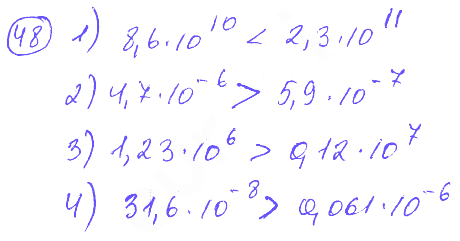 48 1) 8,6·10¹⁰ < 2,3·10¹¹
2) 4,7·10⁻⁶ > 5,9·10⁻⁷
3) 1,23·10⁶ > 0,12·10⁷
4) 31,6·10⁻⁸ > 0,061·10⁻⁶